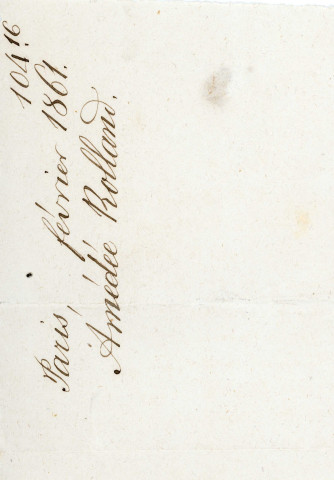 104.16
Paris, février 1861.
Amédée Rolland.